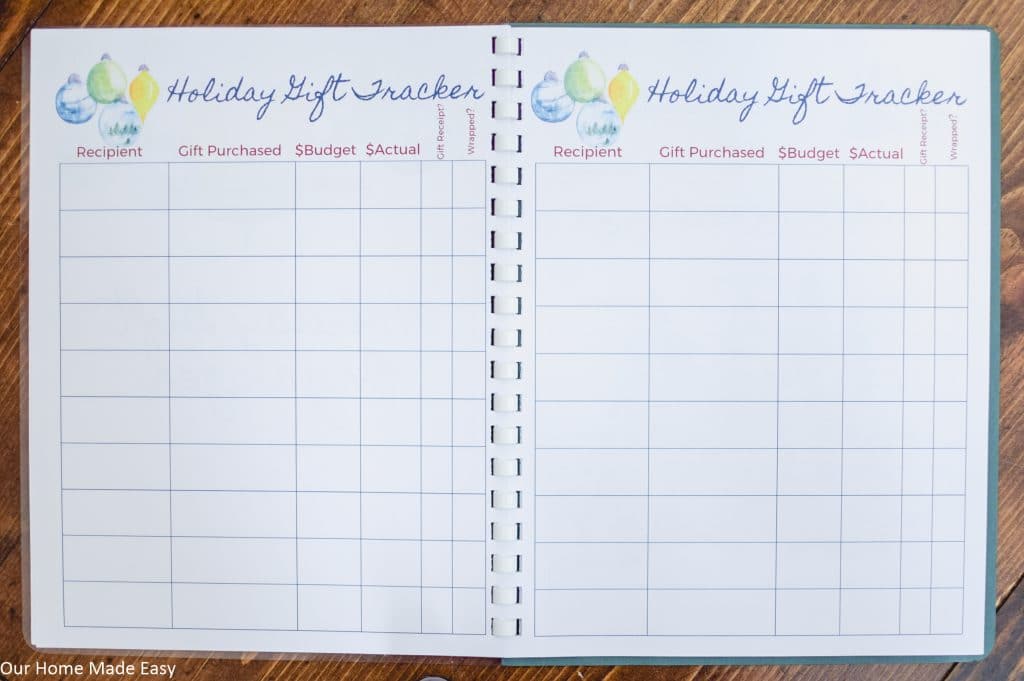 Holiday Gift Tracker
Recipient Gift Purchased $Budget $Actual Gift Receipt? Wrapped?
Holiday Gift Tracker
Recipient Gift Purchased $Budget $Actual Gift Receipt? Wrapped?
Our Home Made Easy